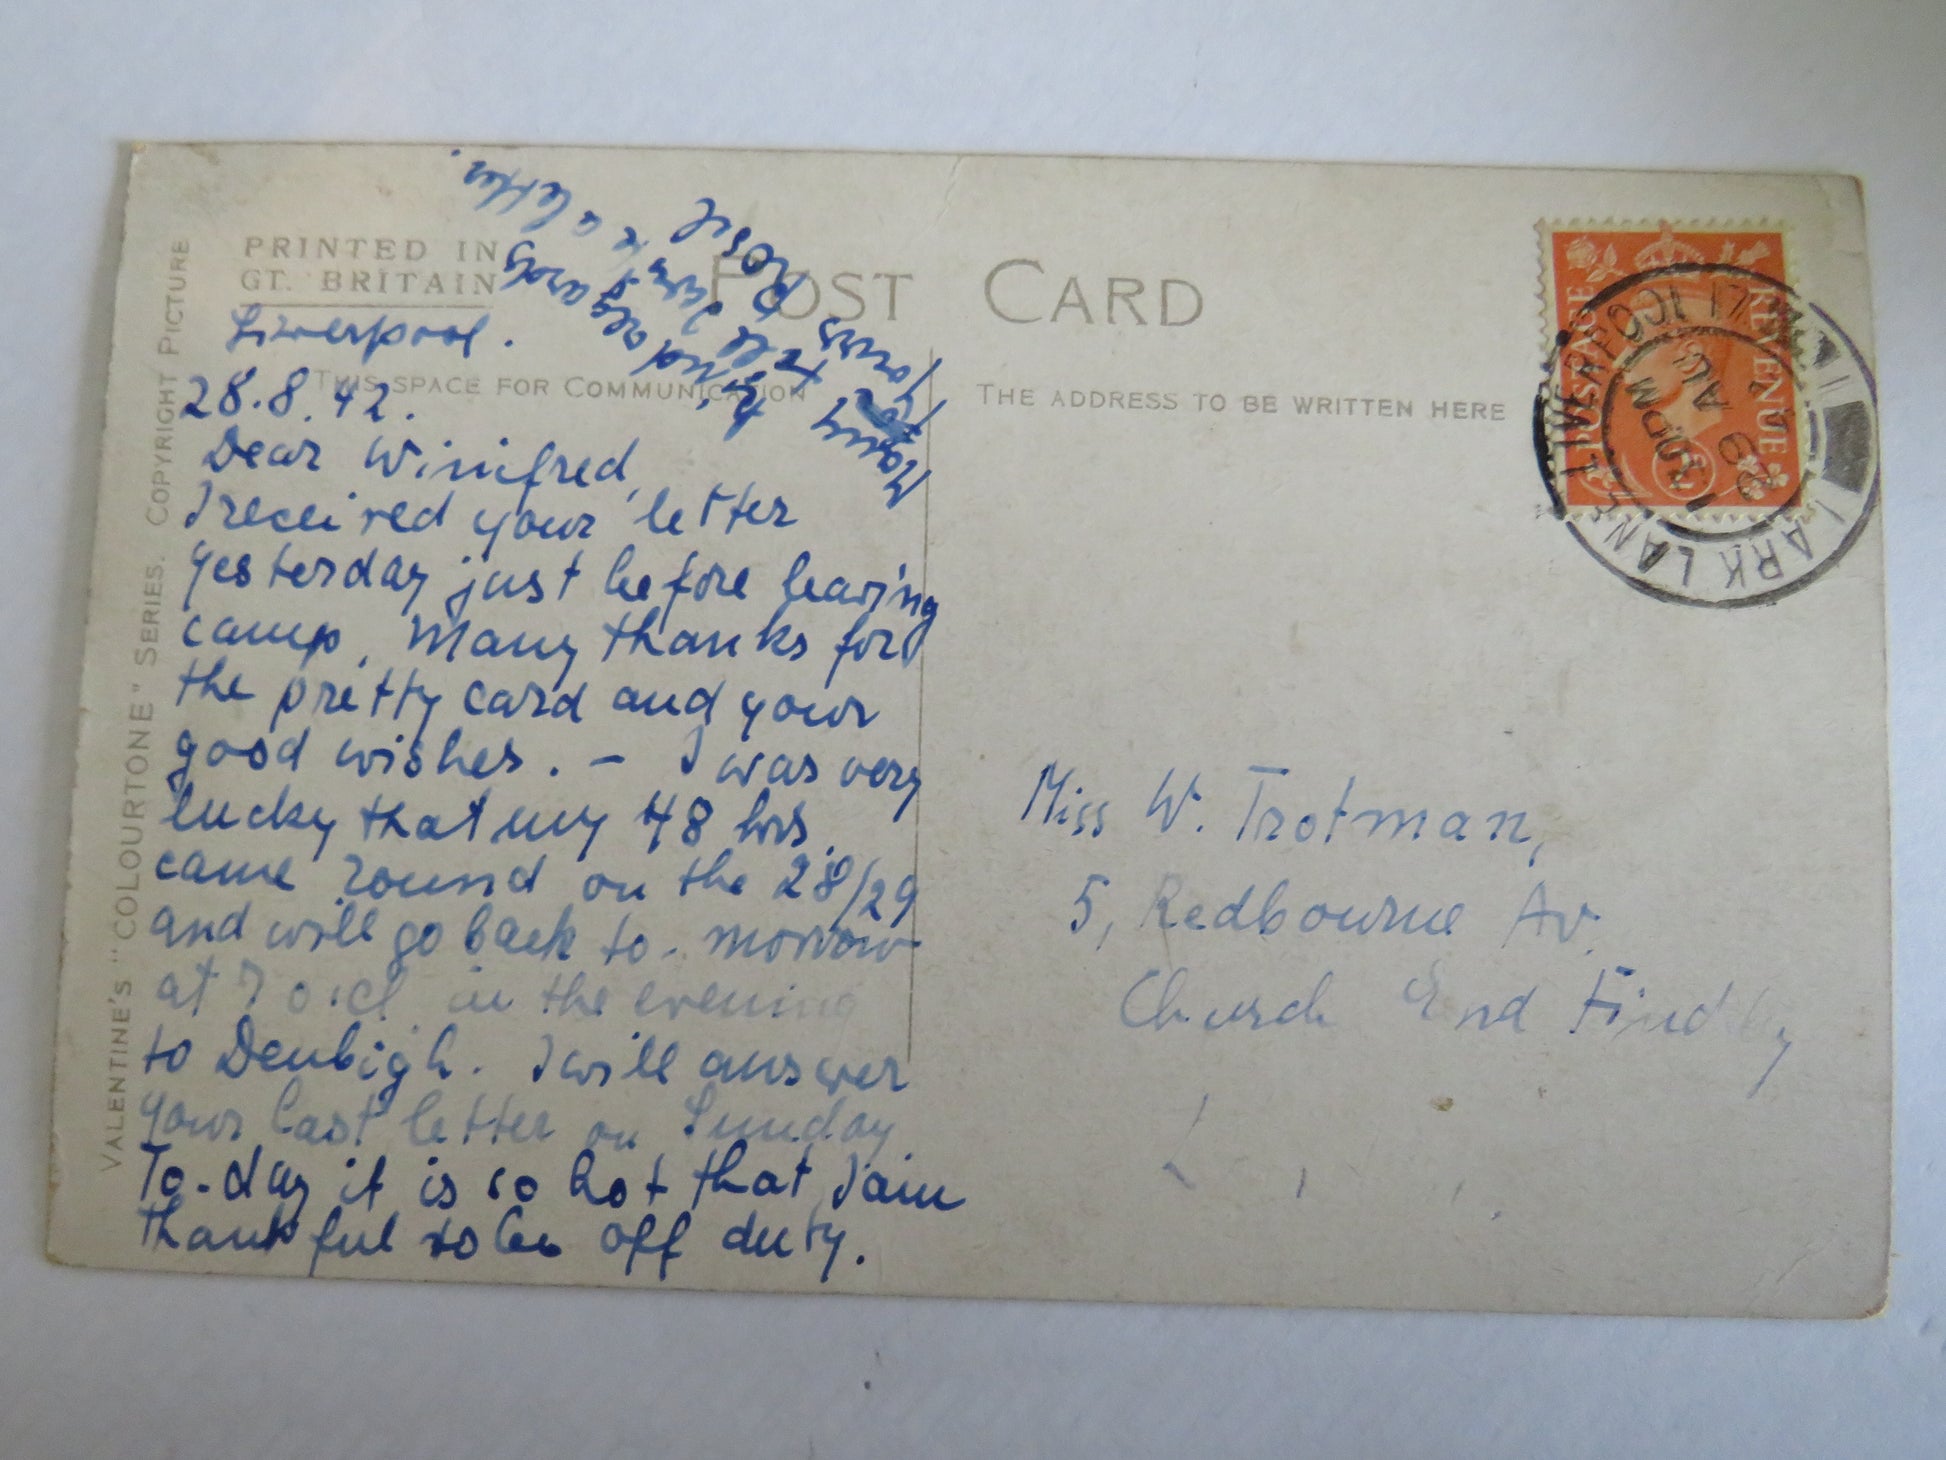 PRINTED IN
GT. BRITAIN
POST CARD
THIS SPACE FOR COMMUNICATION
THE ADDRESS TO BE WRITTEN HERE
VALENTINE'S "COLOURTONE" SERIES. COPYRIGHT PICTURE
Liverpool.
28.8.42.
Dear Winifred,
I received your letter
yesterday just before leaving
camp. Many thanks for
the pretty card and your
good wishes. - I was very
lucky that my 48 hrs.
came round on the 28/29
and will go back to-morrow
at 7 o.cl. in the evening
to Denbigh. I will answer
your last letter on Sunday
To-day it is so hot that I am
thankful to be off duty.
Many
letter.
Yours
Rosl
Miss W. Trotman,
5, Redbourne Av.
Church End Finchley
POSTAGE REVENUE
LIVERPOOL 17
LARK LANE
1 30PM
29 AUG
42